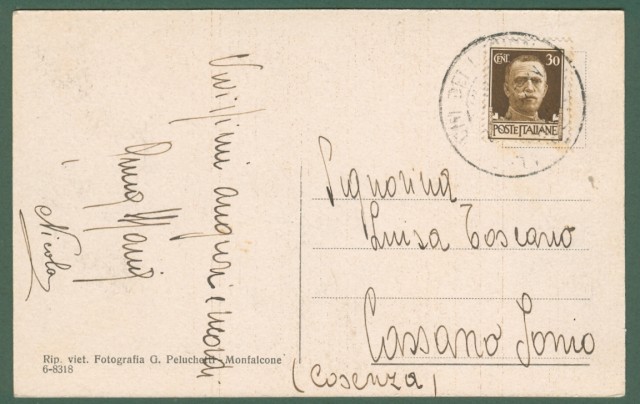 Vivissimi auguri e ricordi
Anna Maria
Nicola
Signorina
Luisa Toscano
Cassano Jonio
(Cosenza)
CENT. 30
POSTE ITALIANE
Rip. viet. Fotografia G. Peluchetti Monfalcone
6-8318